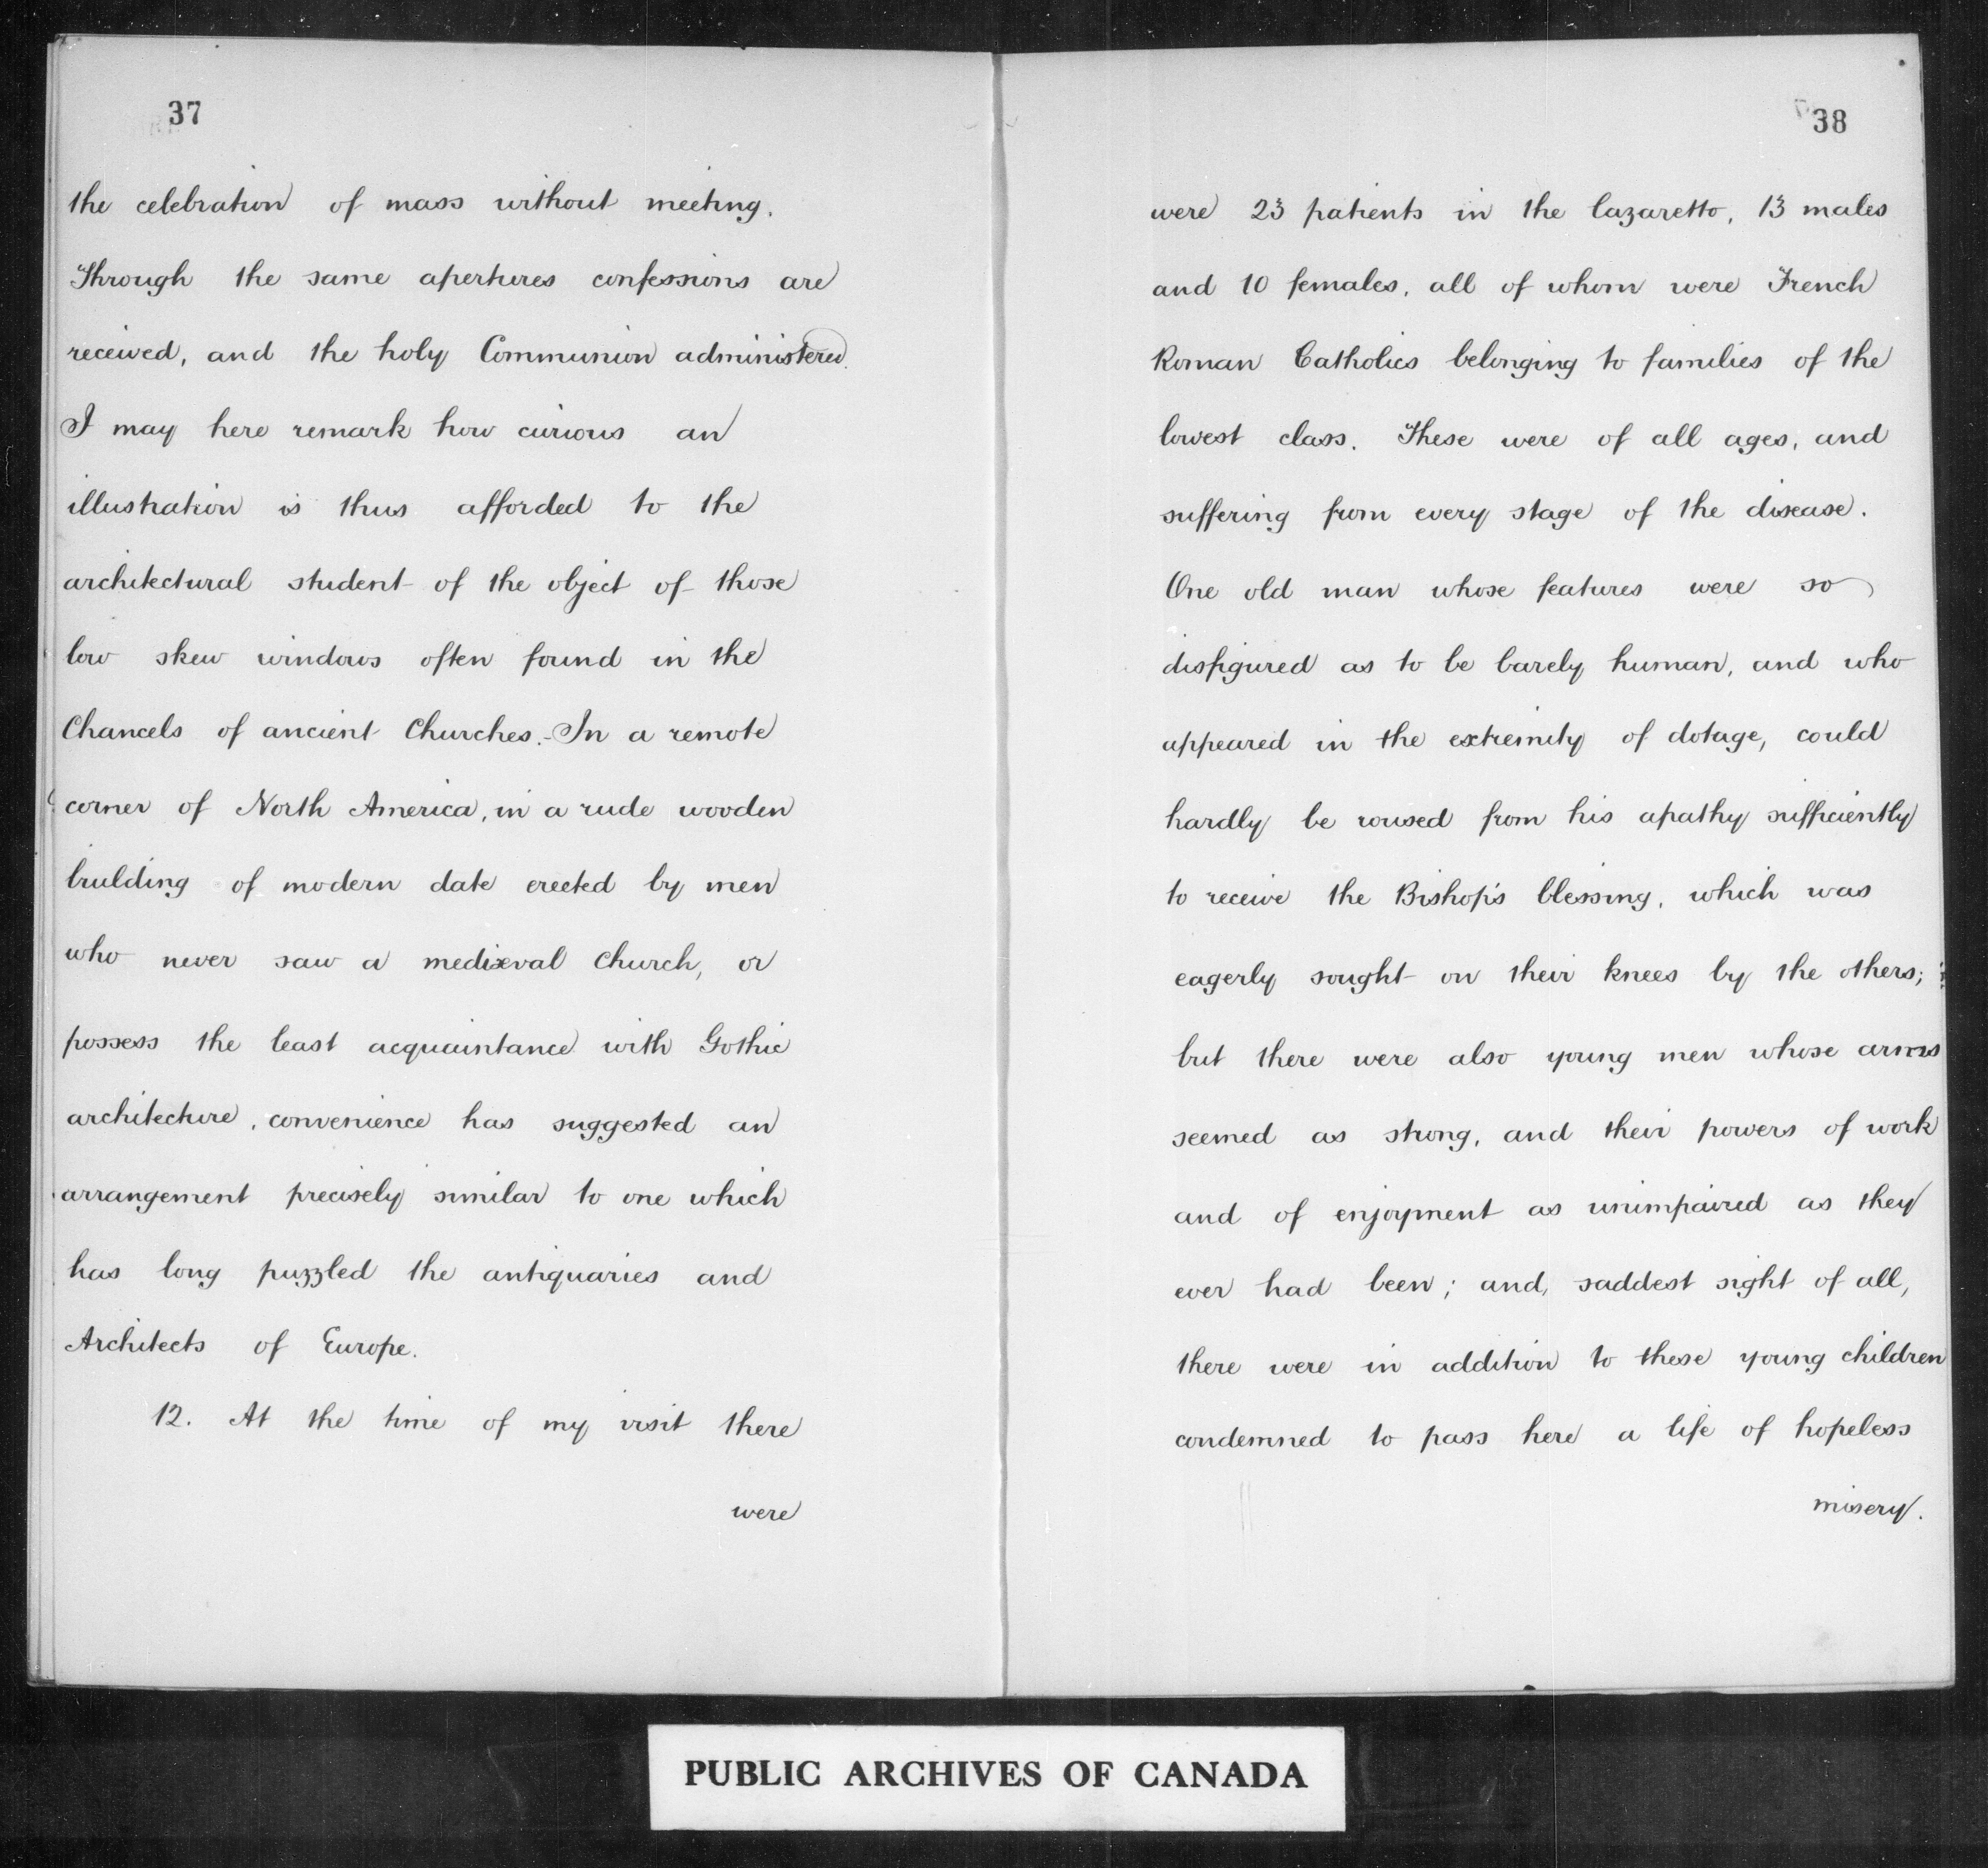 37
the celebration of mass without meeting.
Through the same apertures confessions are
received, and the holy Communion administered.
I may here remark how curious an
illustration is thus afforded to the
architectural student of the object of those
low skew windows often found in the
Chancels of ancient Churches.- In a remote
corner of North America, in a rude wooden
building of modern date erected by men
who never saw a mediæval Church, or
possess the least acquaintance with Gothic
architecture, convenience has suggested an
arrangement precisely similar to one which
has long puzzled the antiquaries and
Architects of Europe.
12. At the time of my visit there
were
38
were 23 patients in the lazaretto, 13 males
and 10 females, all of whom were French
Roman Catholics belonging to families of the
lowest class. These were of all ages, and
suffering from every stage of the disease.
One old man whose features were so
disfigured as to be barely human, and who
appeared in the extremity of dotage, could
hardly be roused from his apathy sufficiently
to receive the Bishop's blessing, which was
eagerly sought on their knees by the others;
but there were also young men whose arms
seemed as strong, and their powers of work
and of enjoyment as unimpaired as they
ever had been; and, saddest sight of all,
there were in addition to these young children
condemned to pass here a life of hopeless
misery.
PUBLIC ARCHIVES OF CANADA